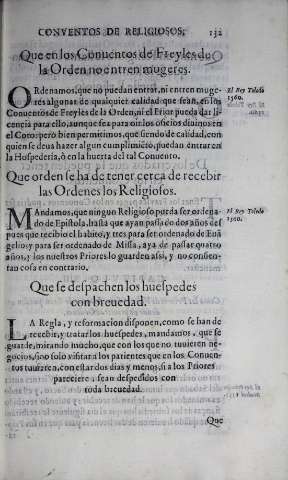 CONVENTOS DE RELIGIOSOS, 132
Que en los Conuentos de Freyles de
la Orden no entren mugeres.
ORdenamos, que no puedan entrar, ni entren muge-
res algunas de qualquier calidad que sean, en los
Conuentos de Freyles de la Orden, ni el Prior pueda dar li-
cencia para ello, aunque sea para oir los oficios diuinos en
el Coro: pero bien permitimos, que siendo de calidad, con
quien se deua hazer algun cumplimiēto, puedan entrar en
la Hospederia, ò en la huerta del tal Conuento.
El Rey Toledo
1560.
Que orden se ha de tener cerca de recebir
las Ordenes los Religiosos.
MAndamos, que ningun Religioso pueda ser ordena-
do de Epistola, hasta que ayan passado dos años des
pues que recibio el habito, y tres para ser ordenado de Euā
gelio: y para ser ordenado de Missa, aya de passar quatro
años, y los nuestros Priores lo guarden assi, y no consien-
tan cosa en contrario.
El Rey Toledo
1560.
Que se despachen los huespedes
con breuedad.
LA Regla, y reformacion disponen, como se han de
recebir, y tratar los huespedes, mandamos, que se
guarde, mirando mucho, que con los que no tuuieren ne-
gocios, sino solo visitar a los parientes que en los Conuen-
tos tuuieren, con estar dos dias y menos, si a los Priores
pareciere, sean despedidos con
toda breuedad.
Que